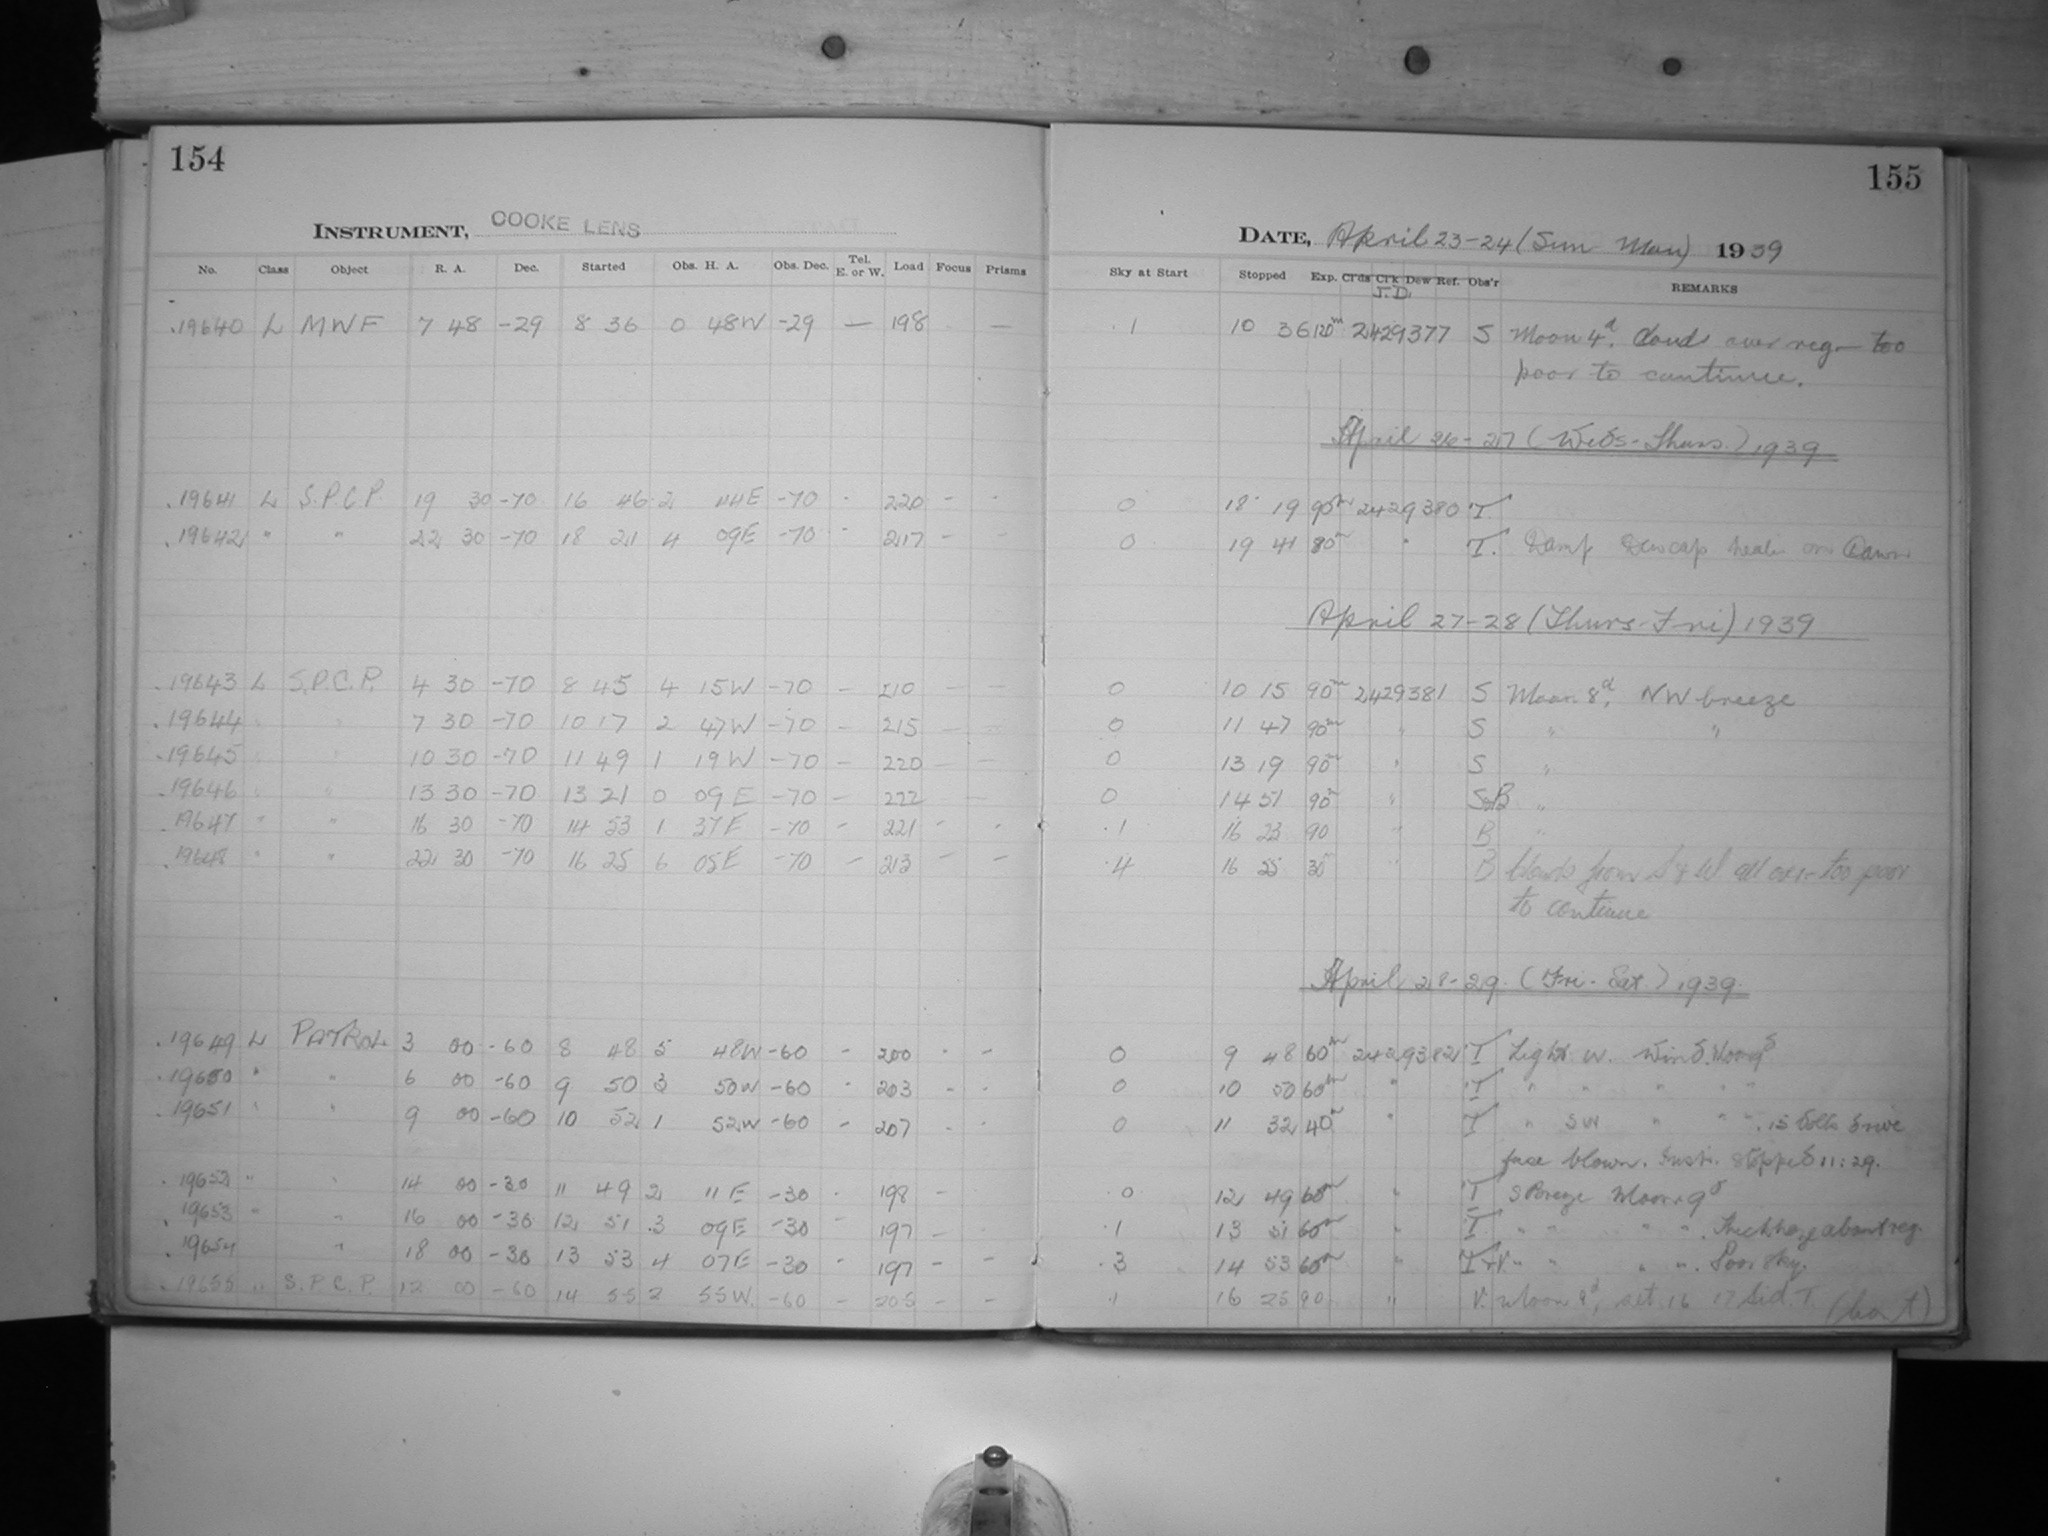 154
INSTRUMENT, COOKE LENS
No. Class Object R. A. Dec. Started Obs. H. A. Obs. Dec. Tel. E. or W. Load Focus Prisms
19640 L MWF 7 48 -29 8 36 0 48W -29 — 198 —
19641 L S.P.C.P. 19 30 -70 16 46 2 44E -70 - 220 - -
19642 " " 22 30 -70 18 21 4 09E -70 - 217 - -
19643 L S.P.C.P. 4 30 -70 8 45 4 15W -70 — 210 — —
19644 " " 7 30 -70 10 17 2 47W -70 — 215 — —
19645 " " 10 30 -70 11 49 1 19W -70 — 220 — —
19646 " " 13 30 -70 13 21 0 09E -70 — 222 —
19647 " " 16 30 -70 14 53 1 37E -70 - 221 - -
19648 " " 22 30 -70 16 25 6 05E -70 — 213 - —
19649 L PATROL 3 00 -60 8 48 5 48W -60 - 200 - -
19650 " " 6 00 -60 9 50 3 50W -60 - 203 - -
19651 " " 9 00 -60 10 52 1 52W -60 - 207 - -
19652 " " 14 00 -30 11 49 2 11E -30 - 198 -
19653 " " 16 00 -30 12 51 3 09E -30 - 197 -
19654 " 18 00 -30 13 53 4 07E -30 - 197 - -
19655 " S.P.C.P. 12 00 -60 14 55 2 55W -60 — 205 - -
155
DATE, April 23-24 (Sun Mon) 1939
Sky at Start Stopped Exp. Cl'ds Cl'k Dew Ref. Obs'r REMARKS
J.D.
.1 10 36 120m 2429377 S Moon 4d. Clouds over reg — too
poor to continue.
April 26-27 (Weds-Thurs.) 1939
0 18 19 90m 2429380 T.
0 19 41 80m " T. Damp Dewcap heater on Dawn
April 27-28 (Thurs-Fri) 1939
0 10 15 90m 2429381 S Moon 8d, NW breeze
0 11 47 90m " S " "
0 13 19 90m " S "
0 14 51 90m " S&B "
.1 16 23 90 " B "
.4 16 25 30 " B Clouds from S & W all over — too poor
to continue
April 28-29 (Fri-Sat.) 1939
0 9 48 60m 2429382 T Light W. Wind. Moon 9d
0 10 50 60m " T " " " " "
0 11 32 40m " T " SW " " " .15 Drive
fuse blown. Instr. stopped 11:29.
0 12 49 60m " T S Breeze Moon 9d
.1 13 51 60m " T. " " " " . Thick haze about reg.
.3 14 53 60m " T+V. " " " " . Poor sky.
.1 16 25 90 " V. Moon 9d, set 16 17 Sid. T. (Con't)